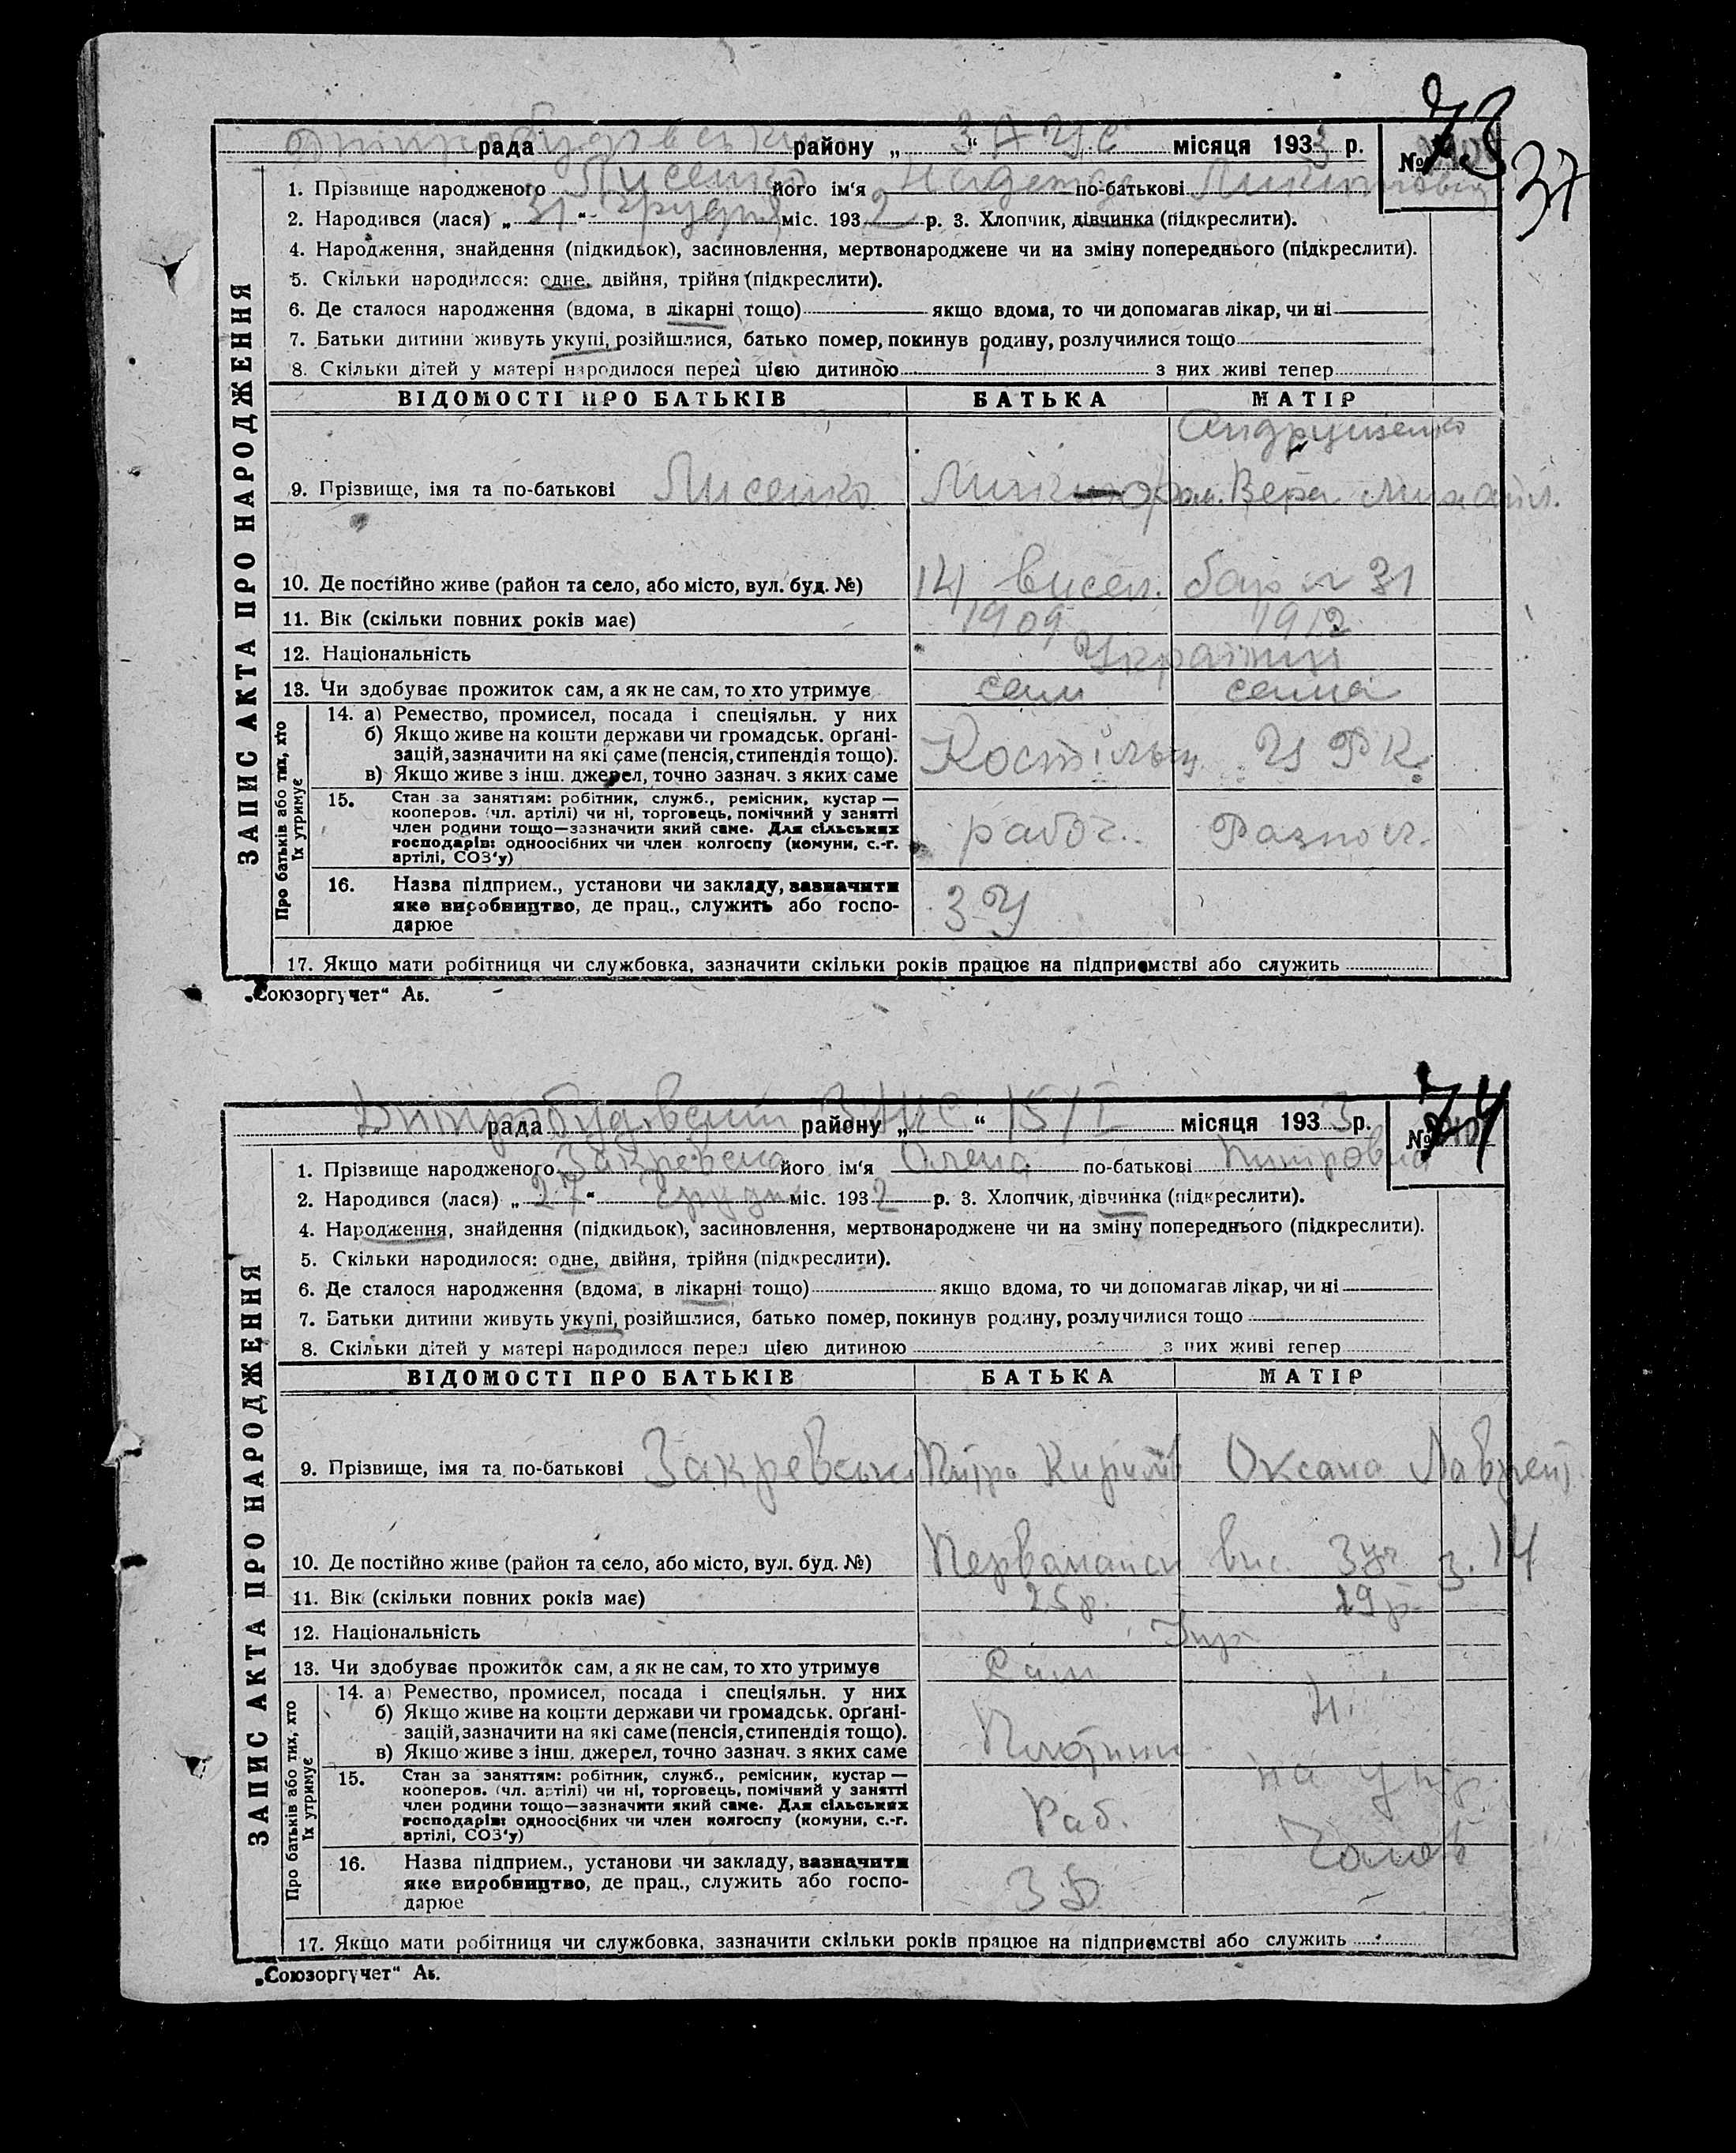 73
37
рада району „ “ ЗАГС місяця 1933 р. №
1. Прізвище народженого Лисенко його ім‘я Надежда по-батькові
2. Народився (лася) „31“ грудня міс. 1932 р. 3. Хлопчик, дівчинка (підкреслити).
4. Народження, знайдення (підкидьок), засиновлення, мертвонароджене чи на зміну попереднього (підкреслити).
5. Скільки народилося: одне, двійня, трійня (підкреслити).
6. Де сталося народження (вдома, в лікарні тощо) якщо вдома, то чи допомагав лікар, чи ні
7. Батьки дитини живуть укупі, розійшлися, батько помер, покинув родину, розлучилися тощо
8. Скільки дітей у матері народилося перед цією дитиною з них живі тепер
ЗАПИС АКТА ПРО НАРОДЖЕННЯ
ВІДОМОСТІ ПРО БАТЬКІВ БАТЬКА МАТІР
Андрущенко
9. Прізвище, імя та по-батькові Лисенко Вера Михайл.
10. Де постійно живе (район та село, або місто, вул. буд. №) 14 висел. бар № 31
11. Вік (скільки повних років має) 1909 1912
12. Національність Українці
13. Чи здобуває прожиток сам, а як не сам, то хто утримує сам сама
Про батьків або тих, хто їх утримує
14. а) Ремество, промисел, посада і спеціяльн. у них
б) Якщо живе на кошти держави чи громадськ. орґані-
зацій, зазначити на які саме (пенсія, стипендія тощо).
в) Якщо живе з інш. джерел, точно зазнач. з яких саме
15. Стан за заняттям: робітник, служб., ремісник, кустар —
кооперов. (чл. артілі) чи ні, торговець, помічний у занятті
член родини тощо—зазначити який саме. Для сільських
господарів: одноосібних чи член колгоспу (комуни, с.-г.
артілі, СОЗ‘у) рабоч.
16. Назва підприєм., установи чи закладу, зазначити
яке виробництво, де прац., служить або госпо-
дарює ЗУ
17. Якщо мати робітниця чи службовка, зазначити скільки років працює на підприємстві або служить
„Союзоргучет“ Аь.
74
рада Дніпробудівський району „ЗАГС“ 15/I місяця 1933 р. №
1. Прізвище народженого його ім‘я Олена по-батькові Питровна
2. Народився (лася) „27“ грудн міс. 1932 р. 3. Хлопчик, дівчинка (підкреслити).
4. Народження, знайдення (підкидьок), засиновлення, мертвонароджене чи на зміну попереднього (підкреслити).
5. Скільки народилося: одне, двійня, трійня (підкреслити).
6. Де сталося народження (вдома, в лікарні тощо) якщо вдома, то чи допомагав лікар, чи ні
7. Батьки дитини живуть укупі, розійшлися, батько помер, покинув родину, розлучилися тощо
8. Скільки дітей у матері народилося перед цією дитиною з них живі тепер
ЗАПИС АКТА ПРО НАРОДЖЕННЯ
ВІДОМОСТІ ПРО БАТЬКІВ БАТЬКА МАТІР
9. Прізвище, імя та по-батькові Закревськ Оксана Лаврент
10. Де постійно живе (район та село, або місто, вул. буд. №) вис. 3 уч 14
11. Вік (скільки повних років має) 25 р. 19 р.
12. Національність Укр
13. Чи здобуває прожиток сам, а як не сам, то хто утримує Сам Ні
Про батьків або тих, хто їх утримує
14. а) Ремество, промисел, посада і спеціяльн. у них
б) Якщо живе на кошти держави чи громадськ. орґані-
зацій, зазначити на які саме (пенсія, стипендія тощо).
в) Якщо живе з інш. джерел, точно зазнач. з яких саме
15. Стан за заняттям: робітник, служб., ремісник, кустар —
кооперов. (чл. артілі) чи ні, торговець, помічний у занятті
член родини тощо—зазначити який саме. Для сільських
господарів: одноосібних чи член колгоспу (комуни, с.-г.
артілі, СОЗ‘у) Раб. на утр.
16. Назва підприєм., установи чи закладу, зазначити
яке виробництво, де прац., служить або госпо-
дарює
17. Якщо мати робітниця чи службовка, зазначити скільки років працює на підприємстві або служить
„Союзоргучет“ Аь.